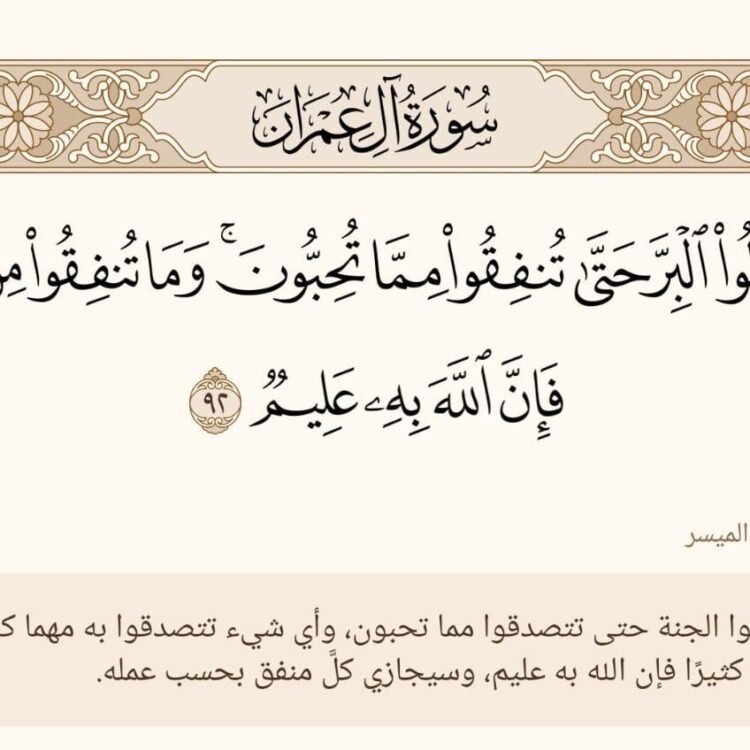 سُورَةُ آلِ عِمْرَانَ
ٱلْبِرَّ حَتَّىٰ تُنفِقُوا۟ مِمَّا تُحِبُّونَ ۚ وَمَا تُنفِقُوا۟
فَإِنَّ ٱللَّهَ بِهِۦ عَلِيمٌ ٩٢
الميسر
الجنة حتى تتصدقوا مما تحبون، وأي شيء تتصدقوا به مهما
كثيرًا فإن الله به عليم، وسيجازي كلَّ منفق بحسب عمله.